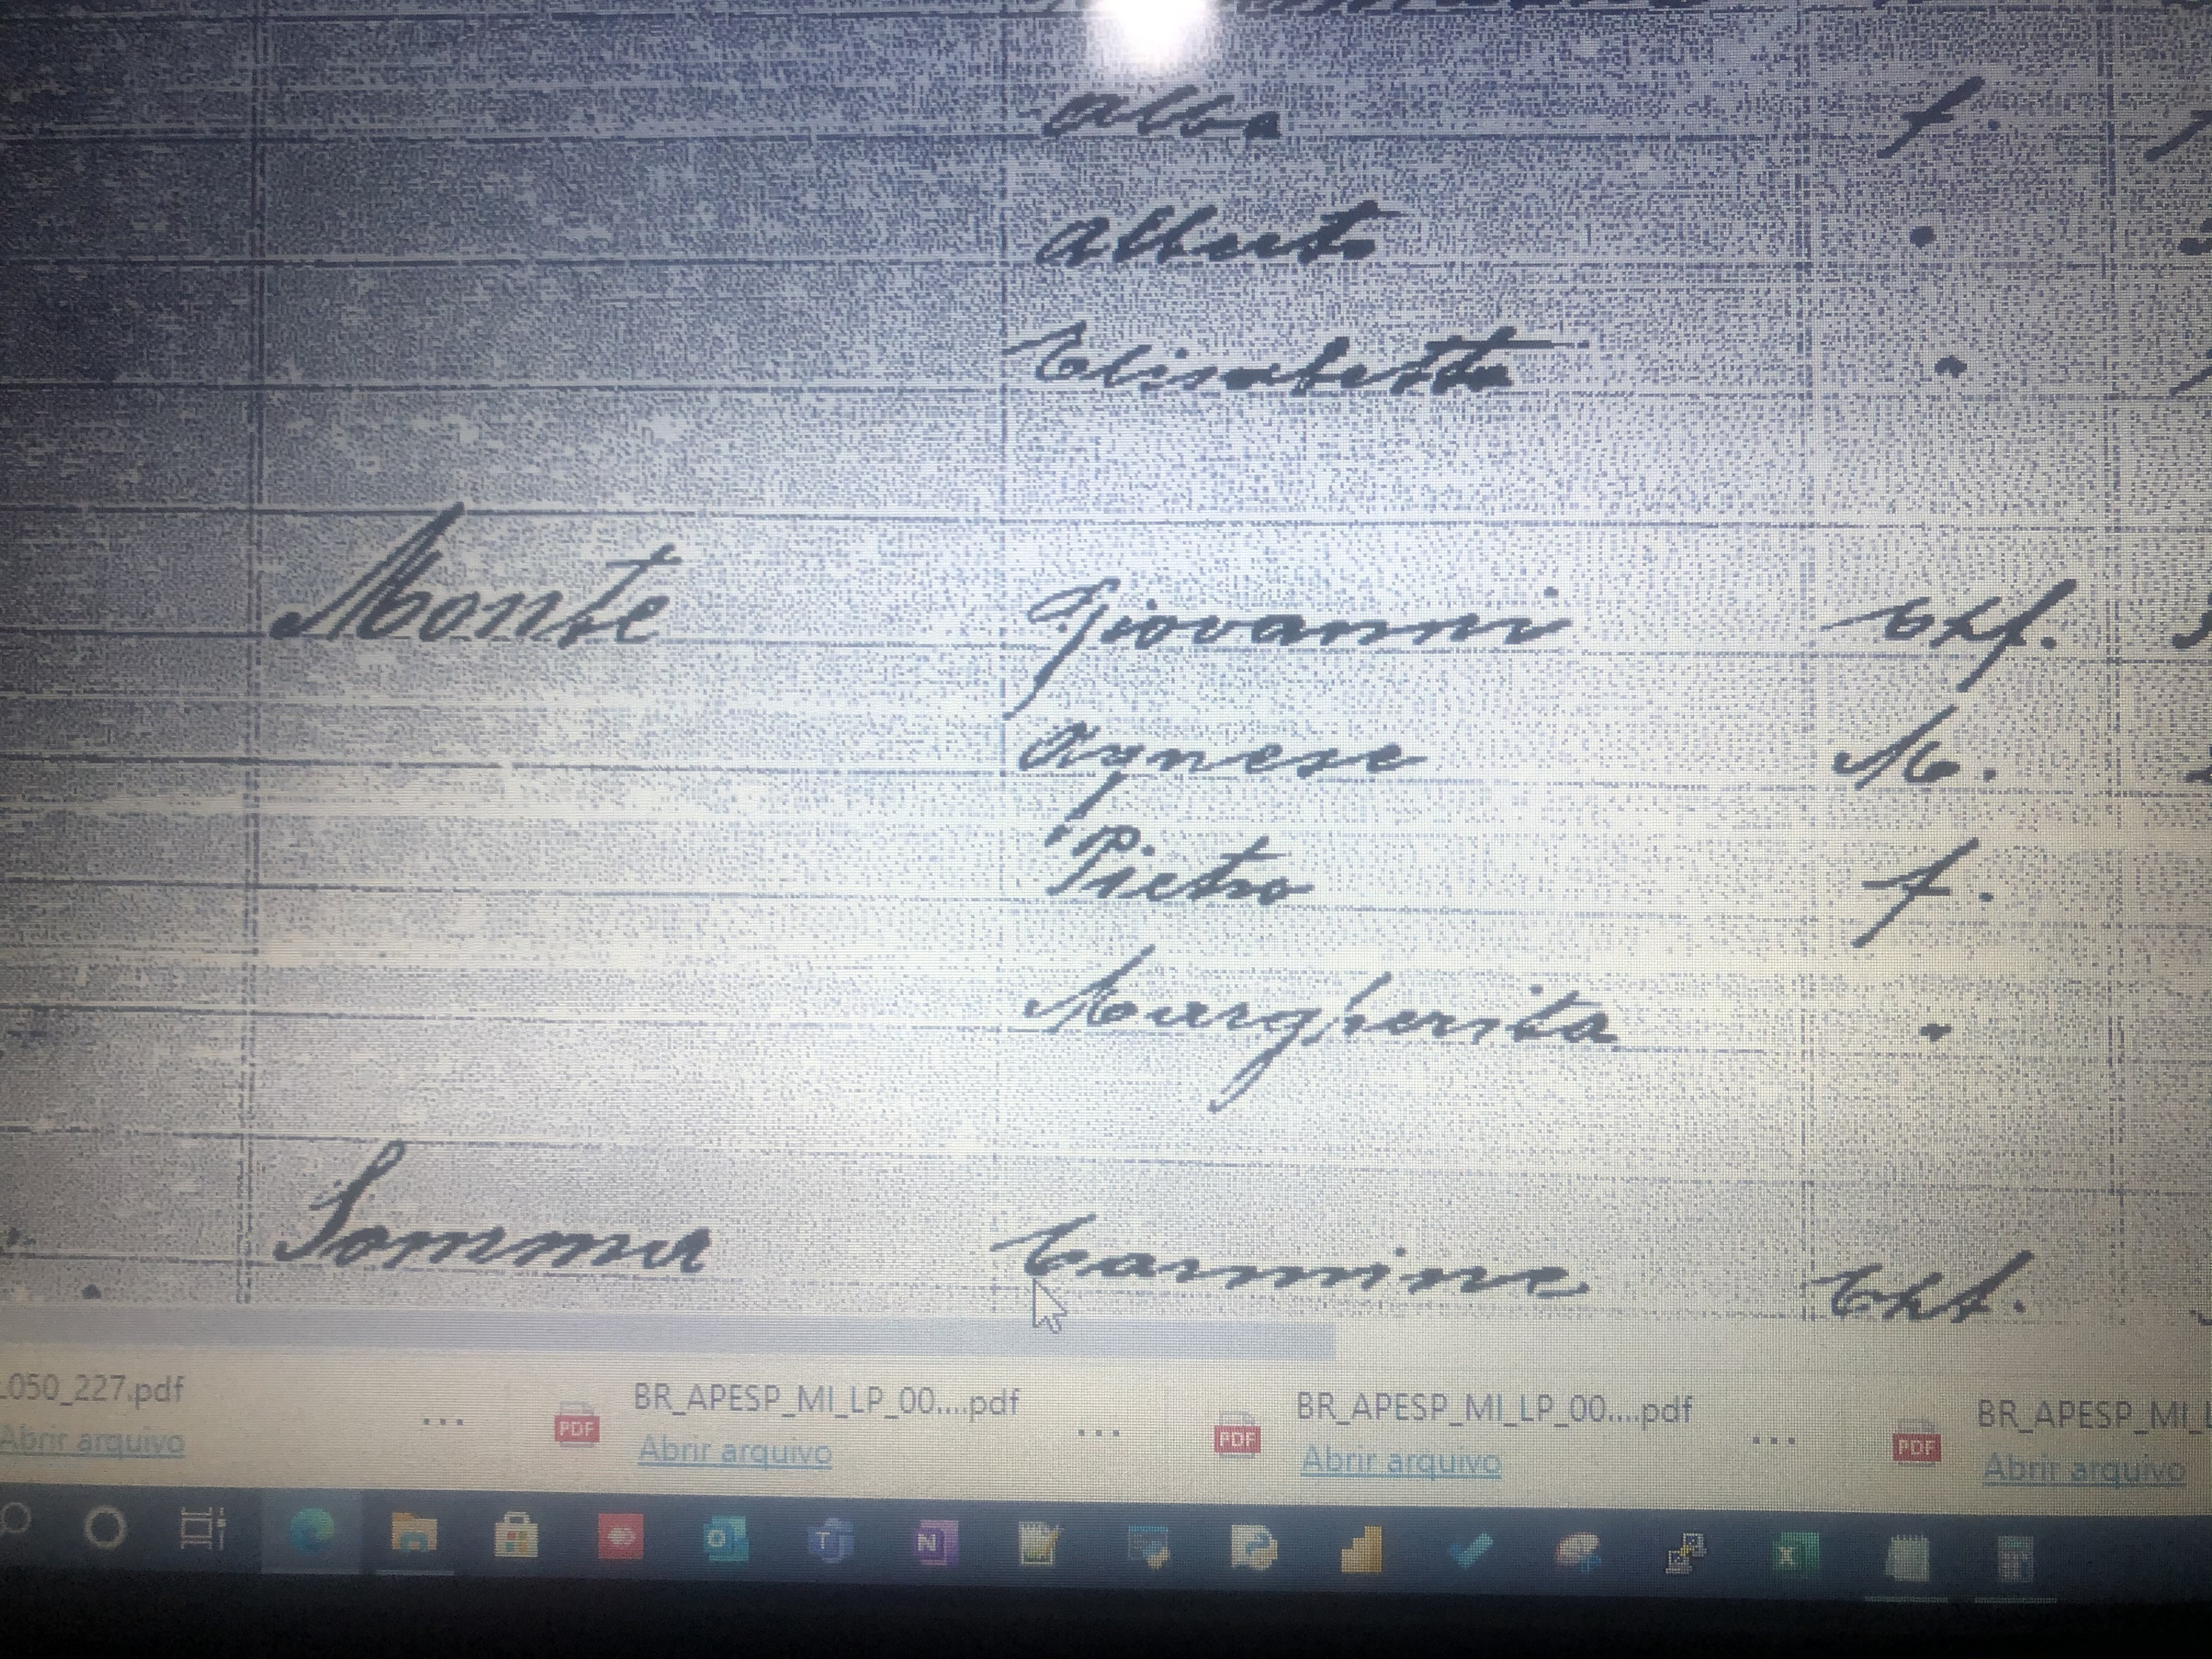 Alba f.
Alberto "
Elisabetta "
Monte Giovanni Chf.
Agnese M.
Pietro f.
Margherita "
Somma Carmine Chf.
050_227.pdf
Abrir arquivo
...
PDF
BR_APESP_MI_LP_00....pdf
Abrir arquivo
...
PDF
BR_APESP_MI_LP_00....pdf
Abrir arquivo
...
PDF
BR_APESP_MI_L
Abrir arquivo